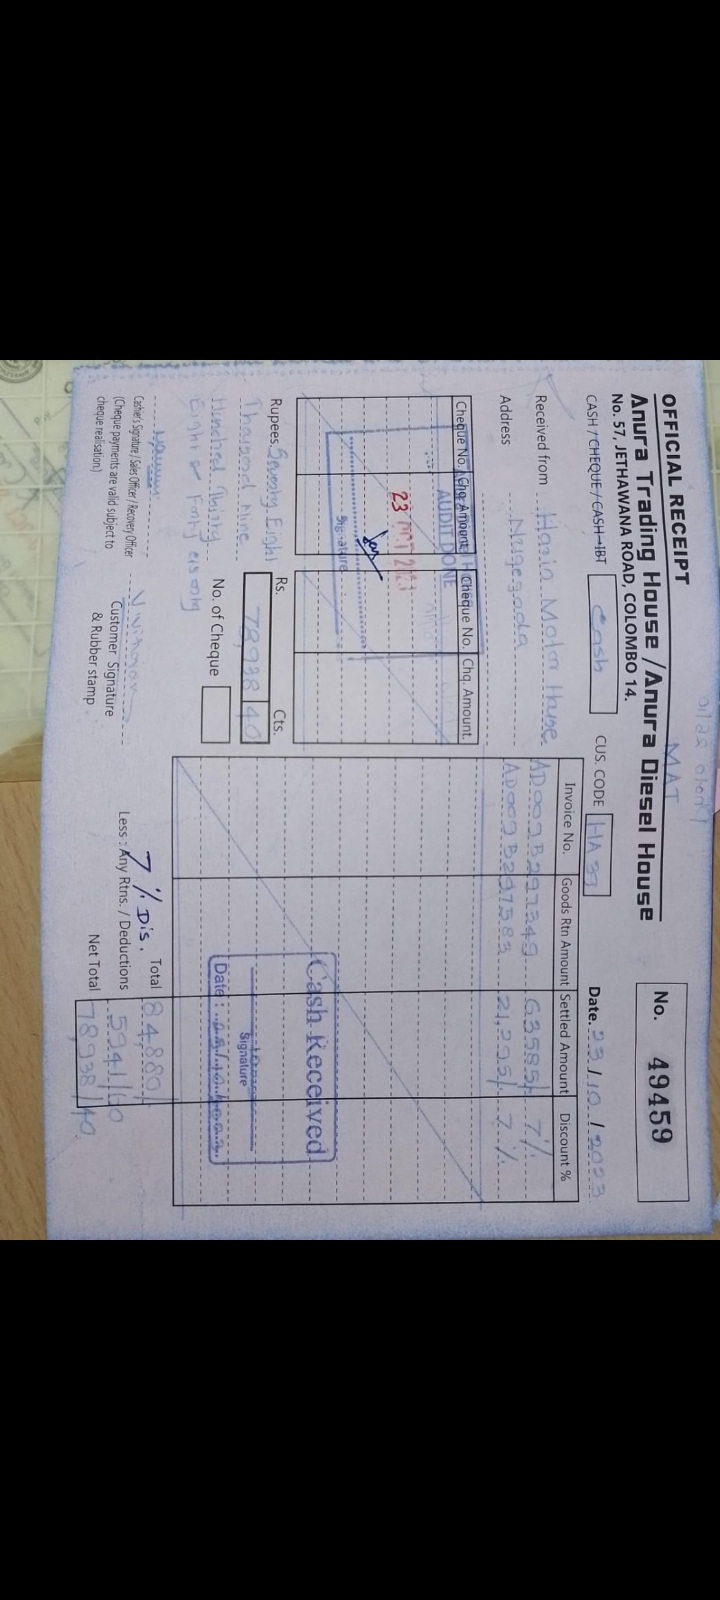 OFFICIAL RECEIPT
MAT
Anura Trading House / Anura Diesel House
No. 57, JETHAWANA ROAD, COLOMBO 14.
No. 49459
CASH / CHEQUE / CASH→IBT Cash
CUS. CODE HA 39
Date. 23/10/2023
Received from Hazio Motor House
Address Nugegoda
Cheque No. Chq. Amount Cheque No. Chq. Amount.
AUDIT DONE
23
Signature
Invoice No. Goods Rtn Amount Settled Amount Discount %
AD009B297349 63585/ 7%
AD009B297583 21,295/ 7%
Cash Received
Signature
Date:
Rupees. Seventy Eight
Thousand Nine
Hundred Thirty
Eight & Forty cts only
Rs. Cts.
78,938 40
No. of Cheque
Total 84,880/
7% Dis.
Less : Any Rtns. / Deductions 5941/60
Net Total 78,938/40
Cashier's Signature / Sales Officer / Recovery Officer
(Cheque payments are valid subject to
cheque realisation)
Customer Signature
& Rubber stamp